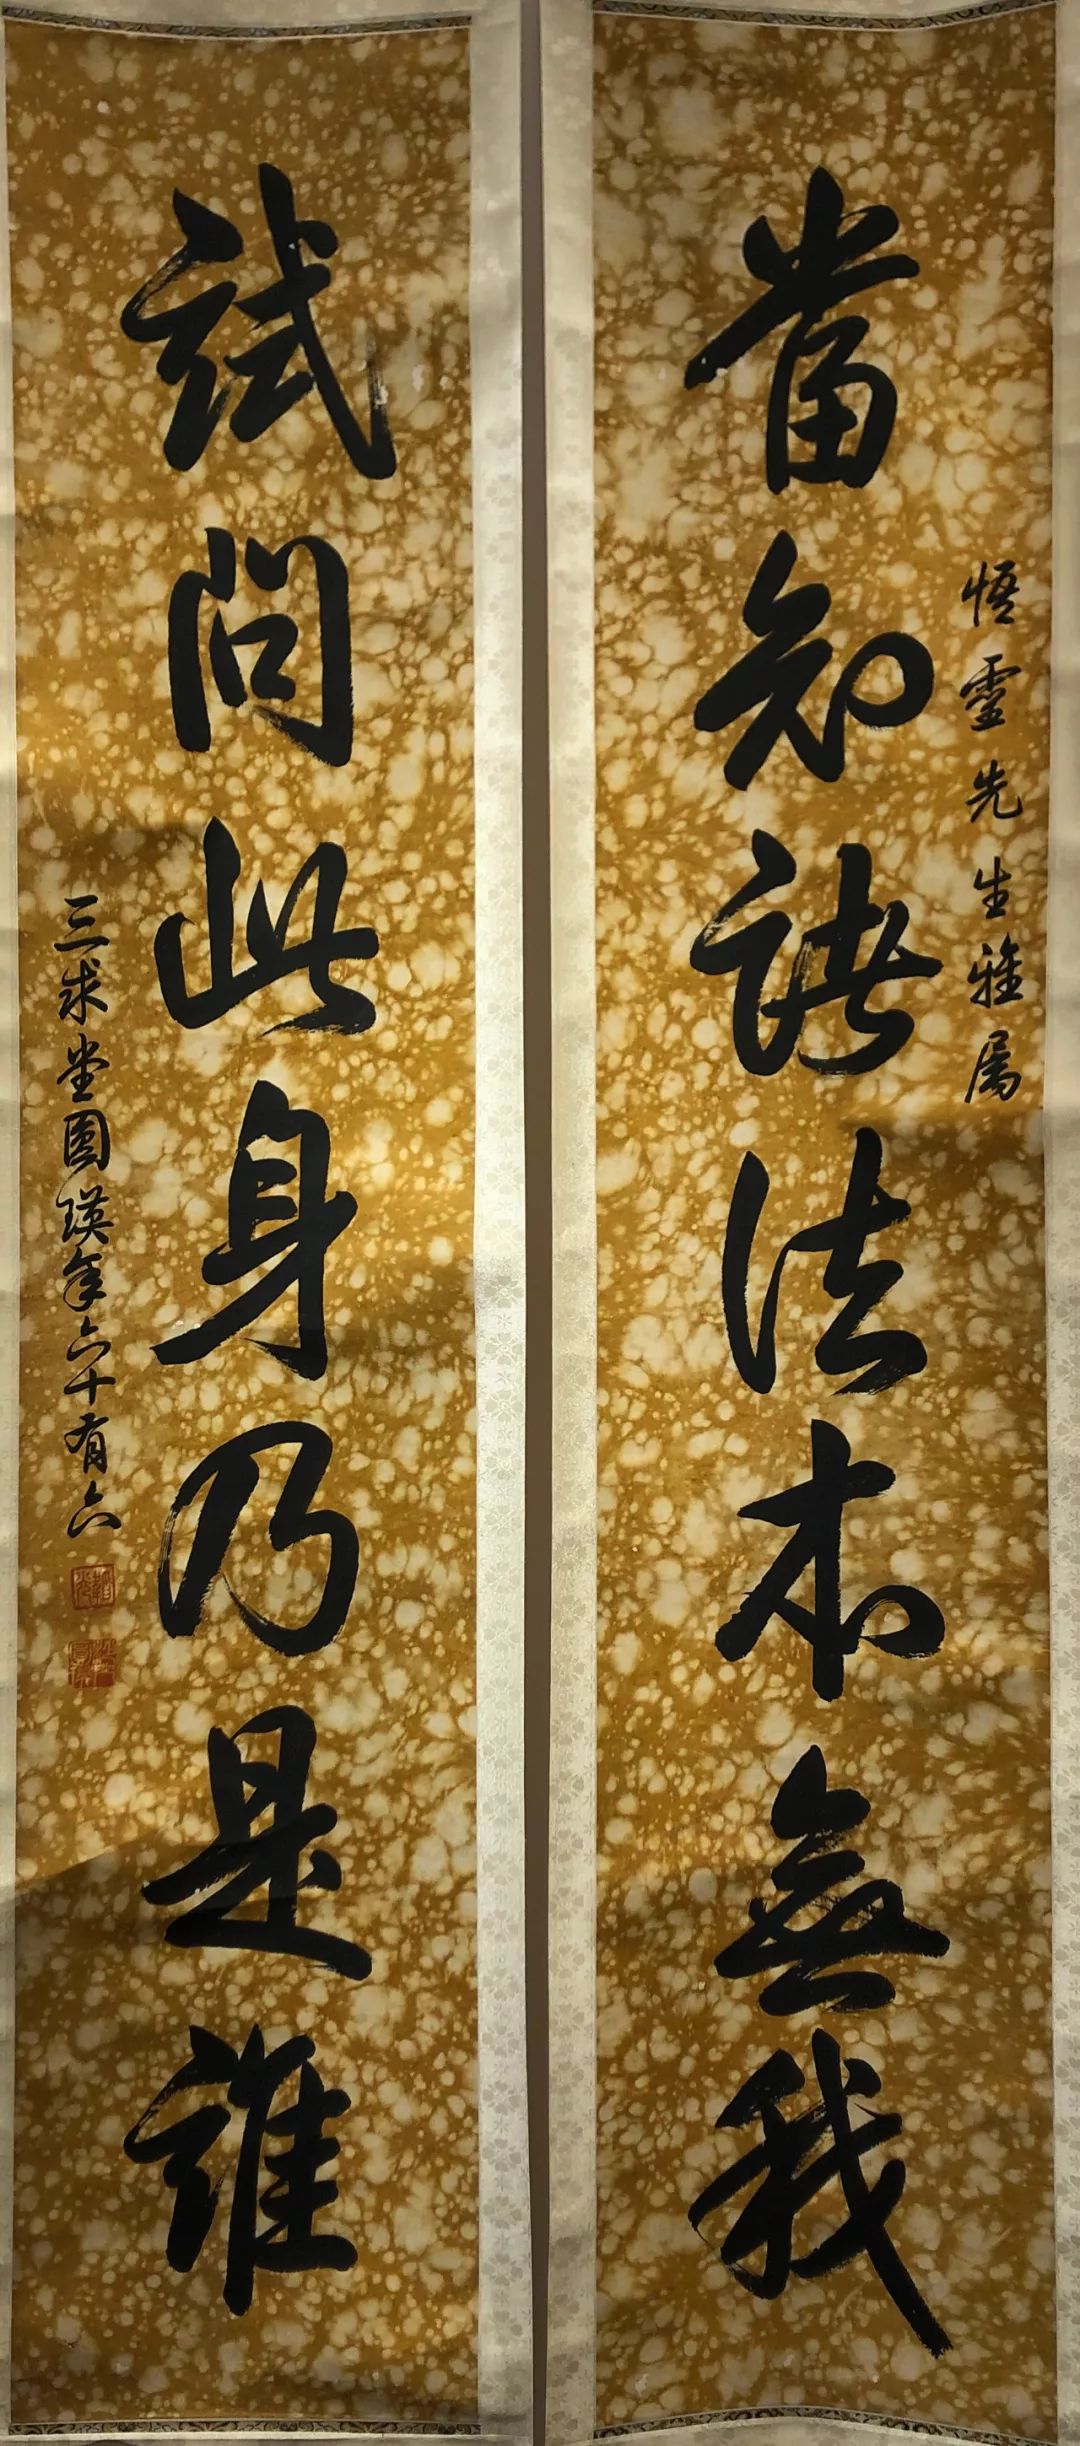 當知諸法本無我
悟靈先生雅屬
試問此身乃是誰
三求堂圓瑛年六十有六